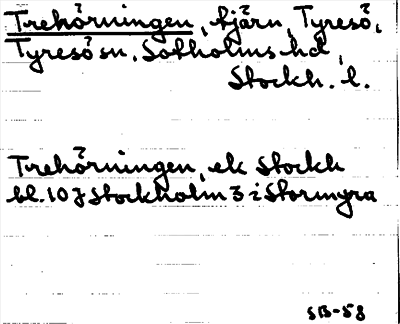 Trehörningen, tjärn, Tyresö,
Tyresö sn, Sotholms hd,
Stockh. l.
Trehörningen, ek Stockh
bl. 10 J Stockholm 3 i Stormyra
SB-58